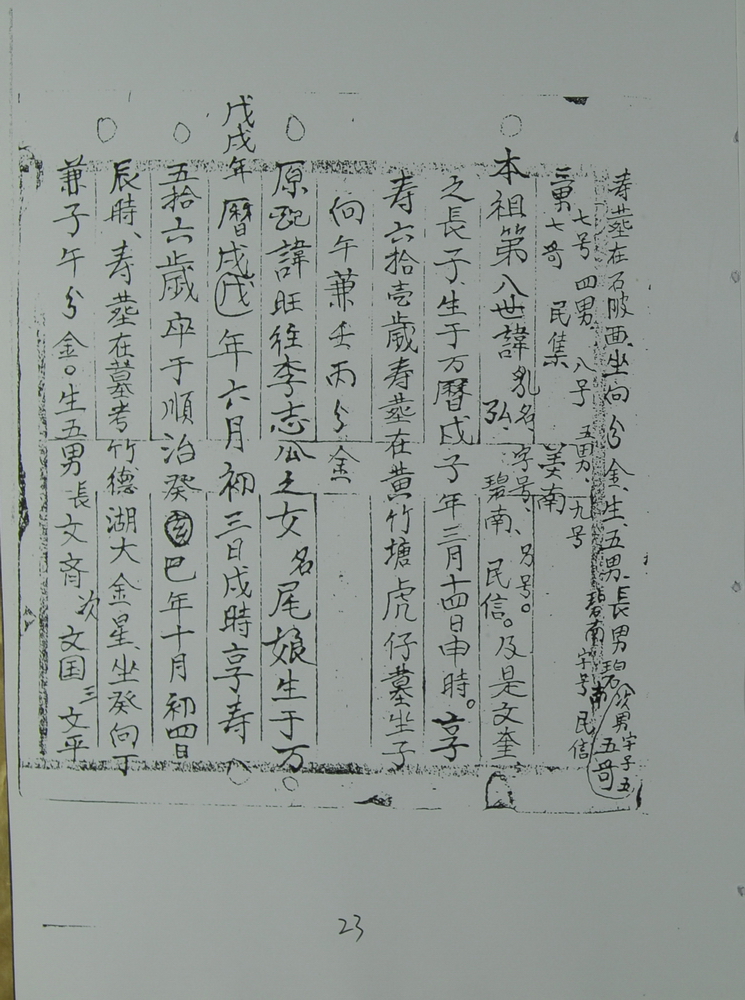 寿墓在石陂西坐向分金生五男長男碧南
次男字子五
五哥
七号 四男 八号 五男 九号 碧南字号民信
三男七哥 民集 美南
本祖第八世諱乳名弘 字号碧南 另号民信。及是文奎
之長子生于万曆戊子年三月十四日申時。享
寿六拾壱歲寿墓在黄竹塘虎仔墓坐子
向午兼壬丙分金
原配諱旺往李志瓜之女名尾娘生于万
戊戌年
曆戌戊年六月初三日戌時享寿
五拾六歲卒于順治癸巳年十月初四日
辰時、寿墓在墓考竹德湖大金星坐癸向丁
兼子午分金。生五男長文斉次文国三文平
23